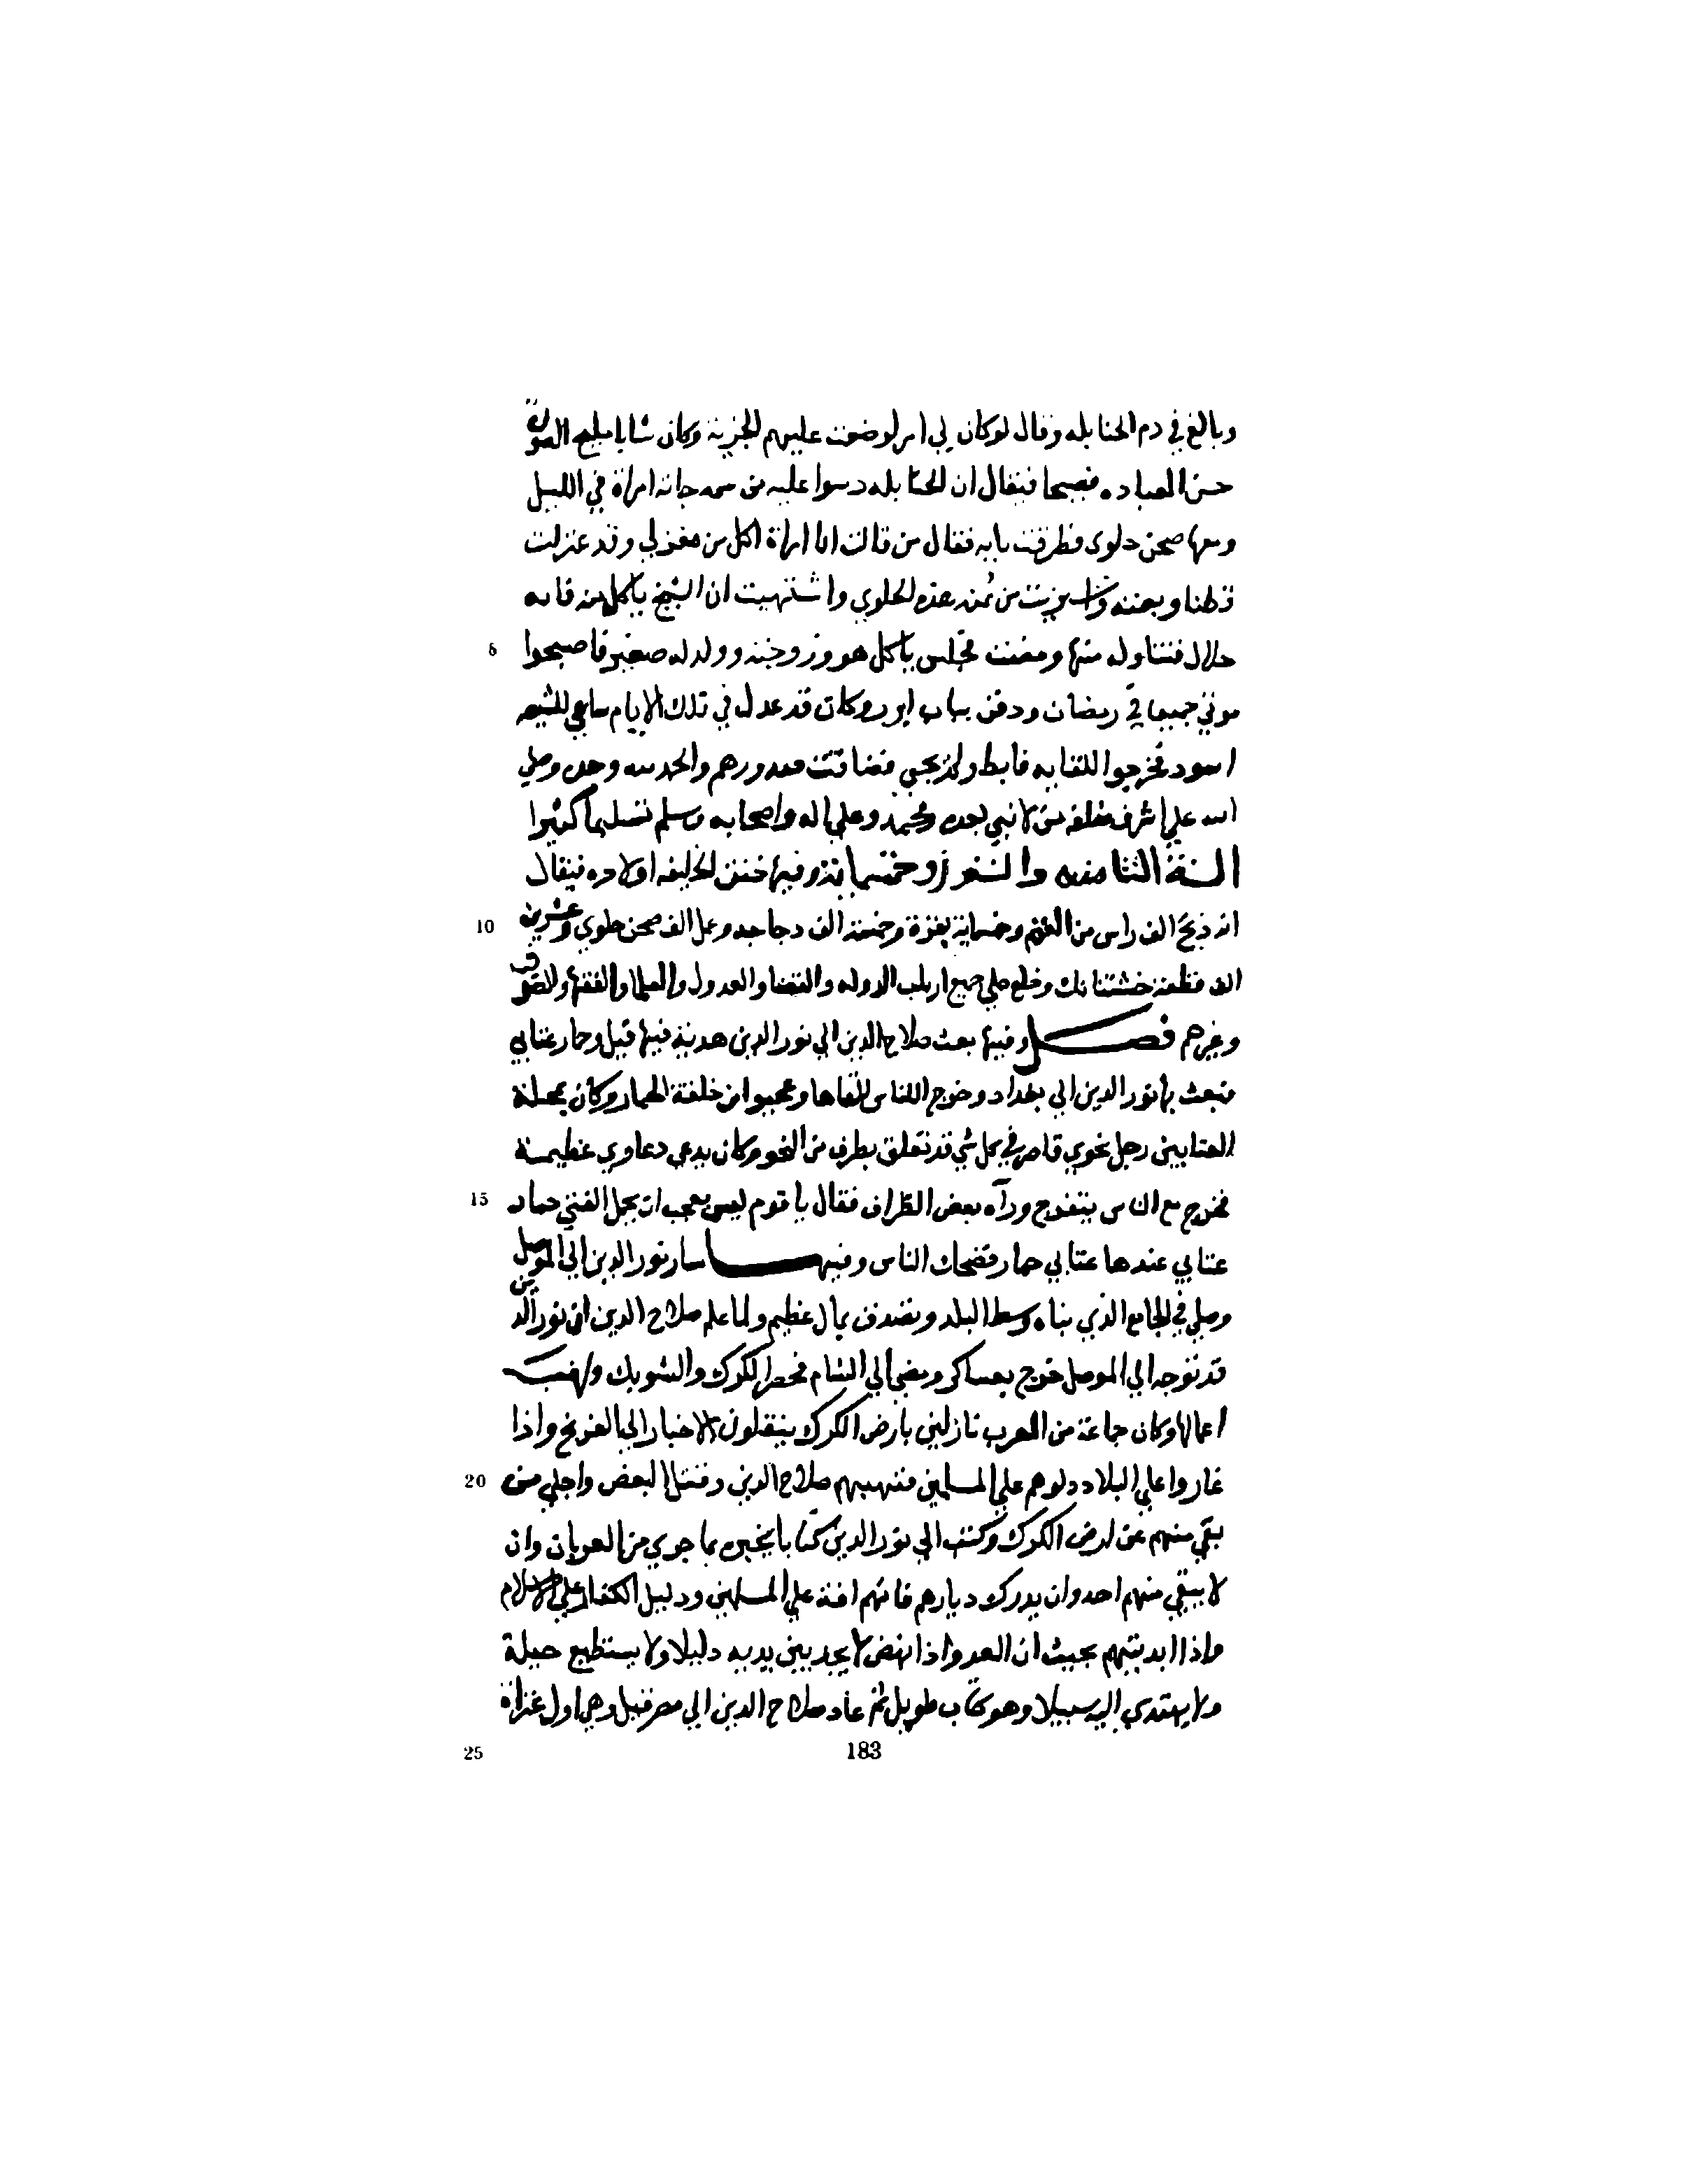 وبالغ في دم الحنابله وقال لوكان لي امر لوضعت عليهم الجزية وكان شابا مليح الصورة
حسن العباده فصيحا فيقال ان الحنابله دسوا عليه من سمه جاته امراة في الليل
ومعها صحن حلوي فطرقت بابه فقال من قالت انا امراة اكل من مغزلي وقد غزلت
قطنا وبعته واشتريت من ثمنه هذه الحلوي واشتهيت ان الشيخ ياكل منه فانه
حلال فتناوله منها ومضت فجلس ياكل هو وزوجته وولد له صغير فاصبحوا
5
موتي جميعا في رمضان ودفن بباب ابرر وكان قد عدل في تلك الايام ساعي للشيعه
اسود فخرجوا للقايه فابطا ولم يجي فضاقت صدورهم والحمد لله وحده وصلي
الله علي اشرف خلقه من لا نبي بعده محمد وعلي اله واصحابه وسلم تسليما كثيرا
السنة الثامنه والستون وخمسماية وفيها ختن الخليفه اولاده فيقال
انه ذبح الف راس من الغنم وخمسماية بقرة وخمسة الف دجاجه وعمل الف صحن حلوي وعشرين
10
الف قطعة خشتنانك وخلع علي جميع ارباب الدوله والقضا والعدول والعلما والفقها والصوفيه
وغيرهم فصل وفيها بعث صلاح الدين الي نور الدين هدية فيها فيل وحمار عتابي
فبعث بها نور الدين الي بغداد وخرج الناس للقاها وعجبوا من خلقة الحمار وكان بمحلة
العتابيين رجل نحوي قاصر في كل شي قد تعلق بطرف من النحو وكان يدعي دعاوي عظيمة
فخرج مع الناس يتفرج وراه بعض الظراف فقال يا قوم ليس بعجب ان يجل الفتي حمار
15
عتابي عندها عتابي حمار فضحك الناس وفيها سار نور الدين الي الموصل
وصلي في الجامع الذي بناه وسط البلد وتصدق بمال عظيم ولما علم صلاح الدين ان نور الدين
قد توجه الي الموصل خرج بعساكره ومضي الي الشام فحصر الكرك والشوبك ونهب
اعمالها وكان جماعة من العرب نازلين بارض الكرك ينقلون الاخبار الي الفرنج واذا
غاروا علي البلاد دلوهم علي المسلمين فنهبهم صلاح الدين وقتل البعض واجلي من
20
بقي منهم عن ارض الكرك وكتب الي نور الدين كتابا يخبره بما جري من العربان وان
لا يبقي منهم احد وان يدرك ديارهم فانهم افة علي المسلمين ودليل الكفار علي الاسلام
واذا ابدتهم بحيث ان العدو اذا نهض لا يجد بين يديه دليلا ولا يستطيع حيلة
ولا يهتدي اليه سبيلا وهو كتاب طويل ثم عاد صلاح الدين الي مصر فقيل وهي اول غزاة
25
183